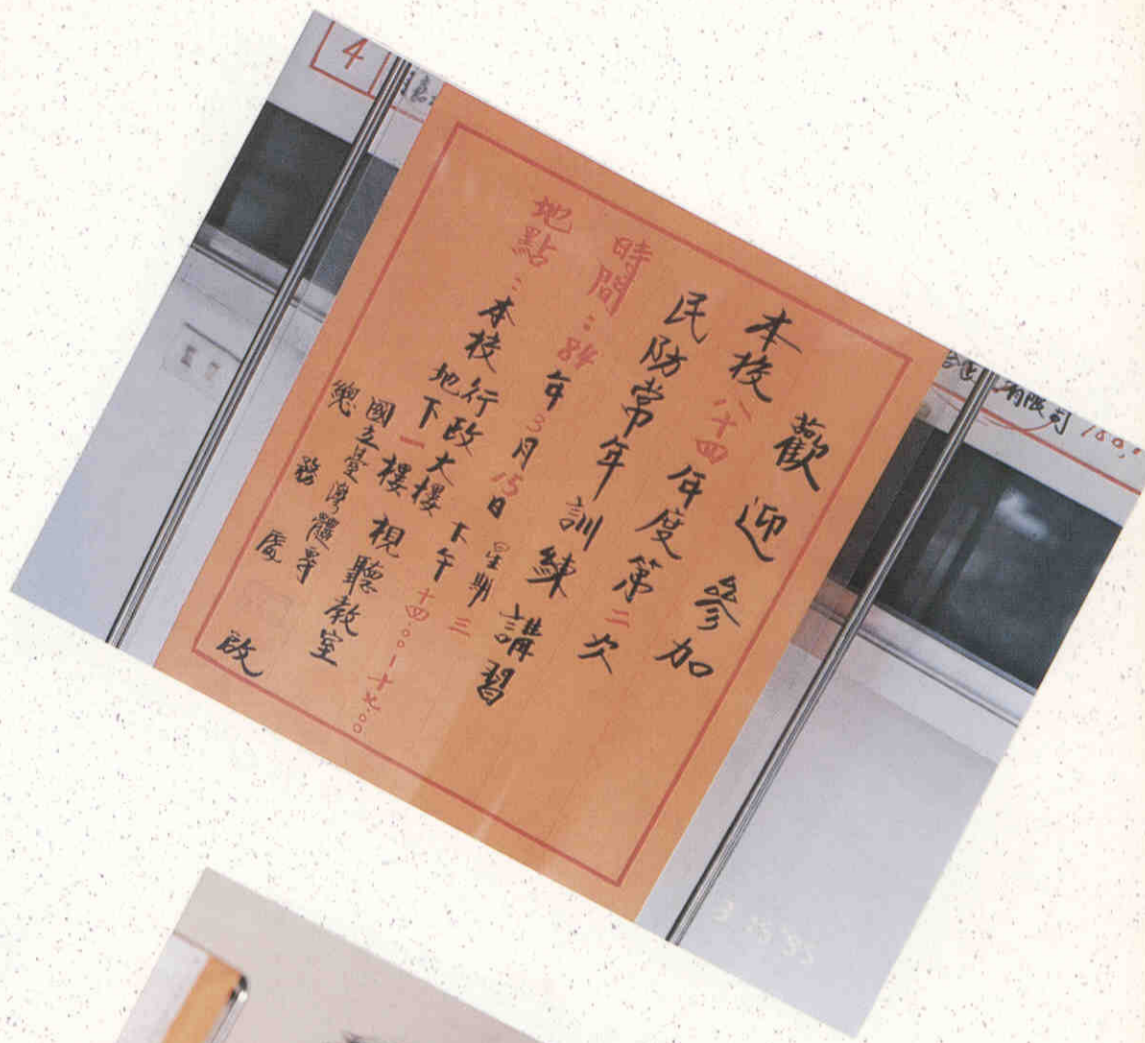 歡迎參加
本校八十四年度第二次
民防常年訓練講習
時間：84年3月15日星期三
下午十四:00—十六:00
地點：本校行政大樓
地下一樓視聽教室
國立臺灣體專
總務處 啟
4
有限司
3 15 '95